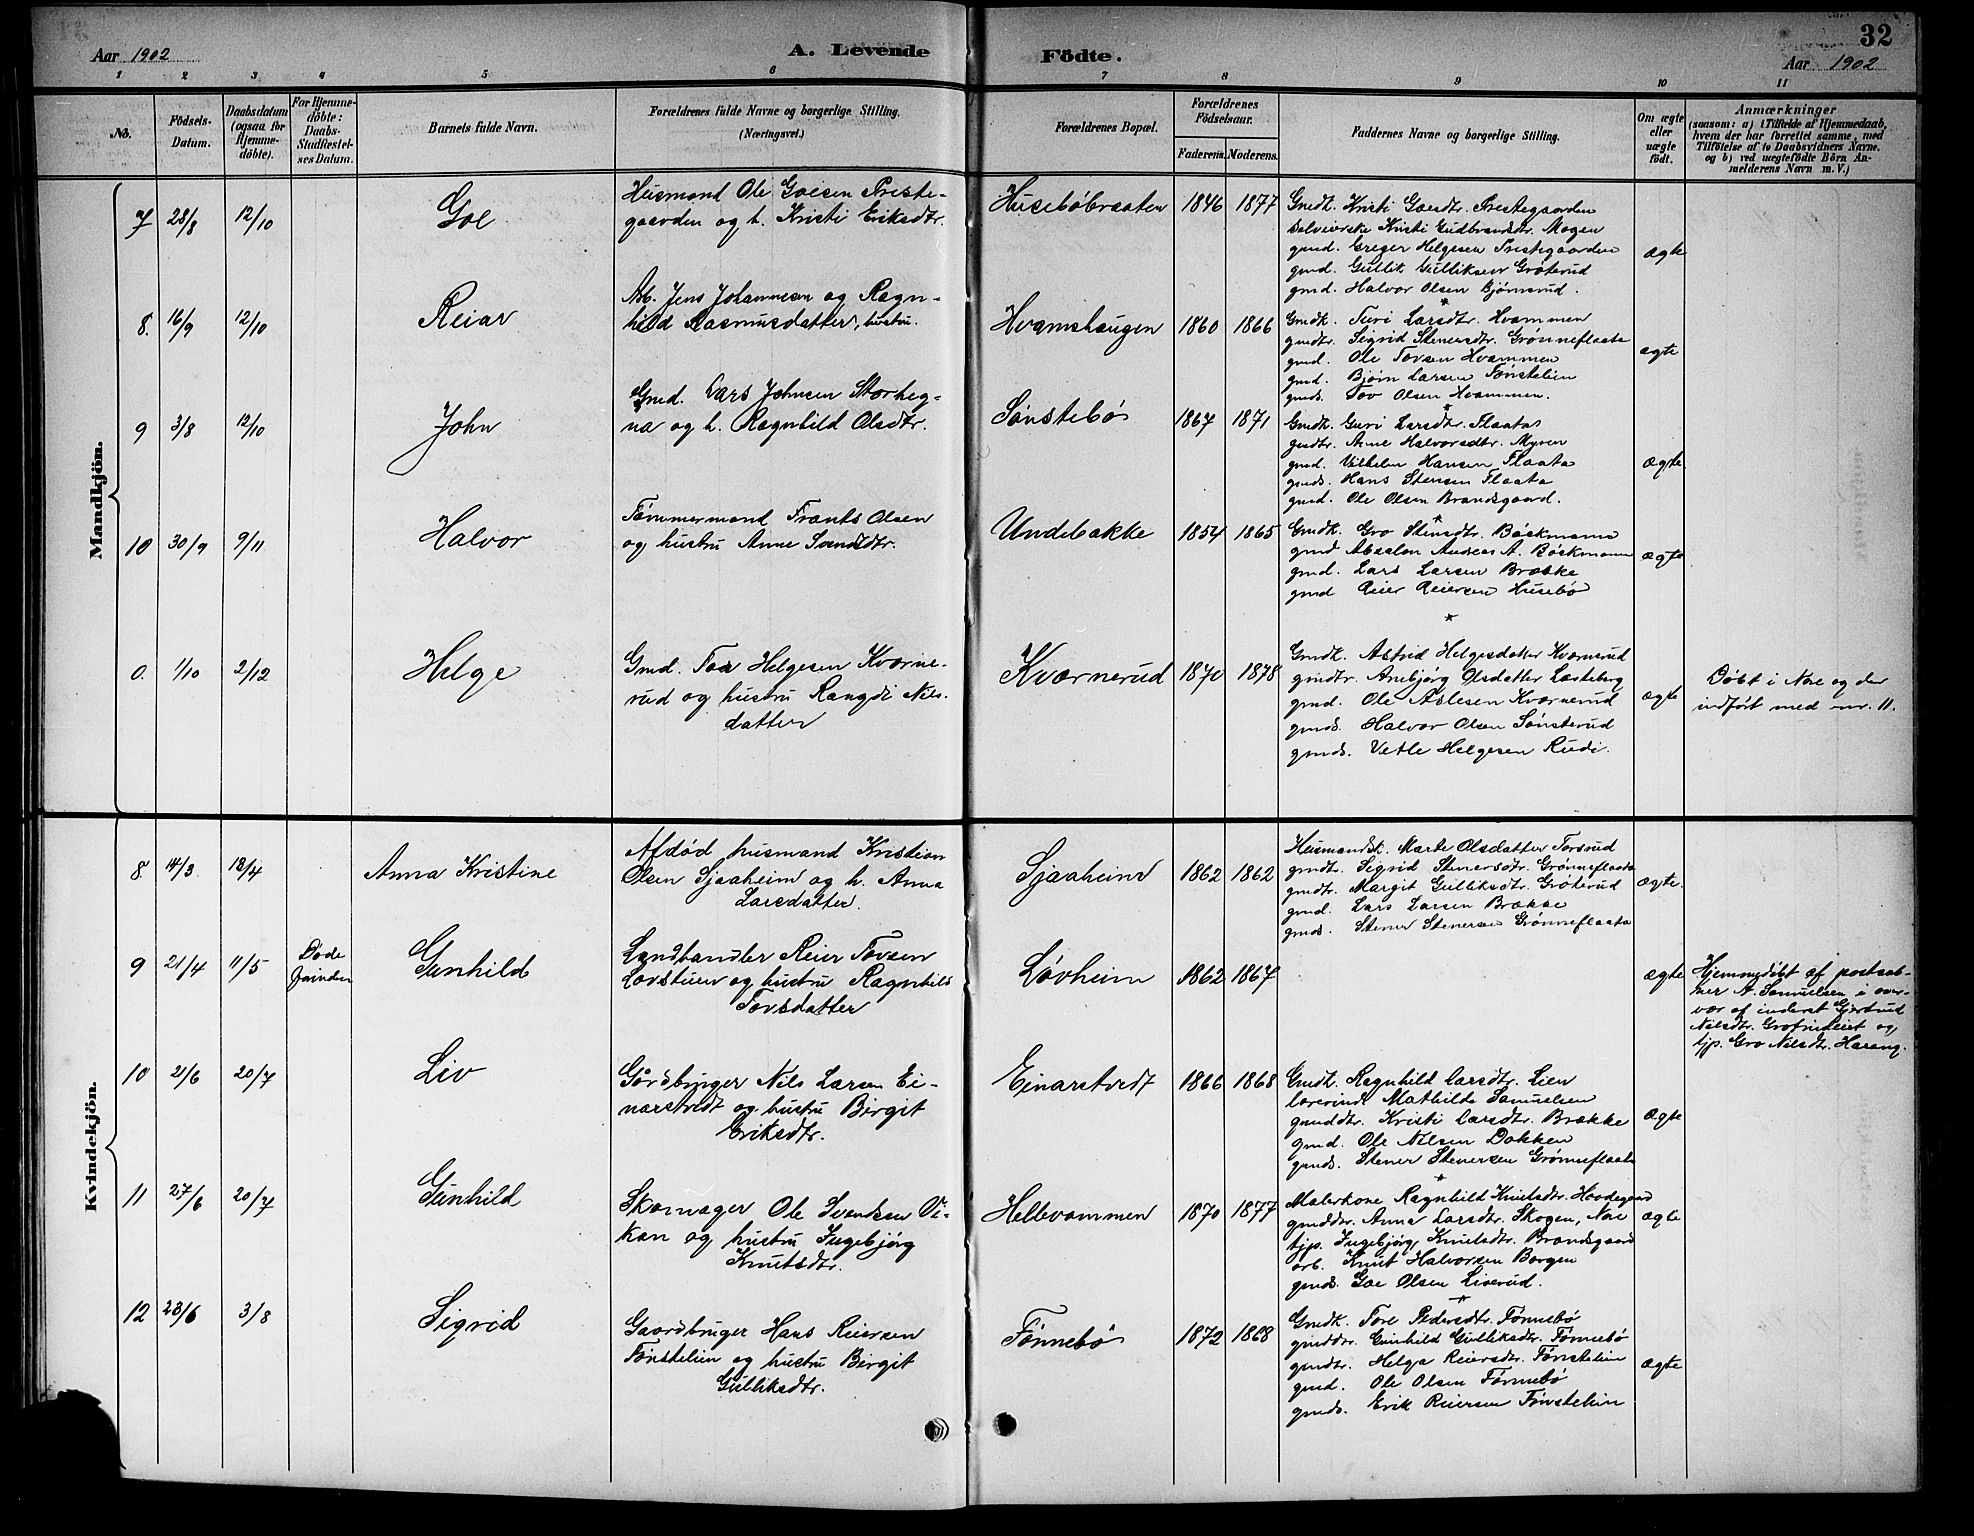 32
Aar 1902
A. Levende
Födte.
Aar 1902
1 2 3 4 5 6 7 8 9 10 11
No.
Födsels-
Datum.
Daabsdatum
(ogsaa for
Hjemme-
döbte).
For Hjemme-
döbte:
Daabs-
Stadfæstel-
ses Datum.
Barnets fulde Navn.
Forældrenes fulde Navne og borgerlige Stilling.
(Næringsvei.)
Forældrenes Bopæl.
Forældrenes
Födselsaar.
Faderens.
Moderens.
Faddernes Navne og borgerlige Stilling.
Om ægte
eller
uægte
født.
Anmærkninger
(saasom: a) i Tilfælde af Hjemmedaab,
hvem der har forrettet samme, med
Tilföielse af to Daabsvidners Navne,
og b) ved uægtefödte Börn An-
melderens Navn m. V.)
Mandkjön.
7 28/8 12/10
Goe
Husmand Ole Goesen Preste-
gaarden og h. Kristi Eriksdtr.
Huseböbraaten 1846 1877
Gmdk. Kristi Goesdtr. Prestegaarden
selveierske Kristi Gudbrandsdtr. Mogen
gmd. Greger Helgesen Prestegaarden
gmd. Gullik Gulliksen Gröterud
gmd. Halvor Olsen Björnerud.
ægte
8. 16/9 12/10
Reiar
Arb. Jens Johannesen og Ragn-
hild Rasmusdatter, hustru.
Hvamshaugen 1860 1866
Gmdk. Turi Larsdtr. Hvammen
gmdtr. Sigrid Stenersdtr. Grönneflaata
gmd. Ole Tovsen Hvammen
gmd. Björn Larsen Tönstelien
gmds. Tov Olsen Hvammen.
ægte
9 3/8 12/10
John
Gmd. Lars Johnsen Storheg-
na og h. Ragnhild Olsdtr.
Sönstebö 1867 1871
Gmdk. Guri Larsdtr. Flaata
gmdtr. Anne Halvorsdtr. Myren
gmd. Vilhelm Hansen Flaata
gmds. Hans Stensen Flaata
gmd. Ole Olsen Brandsgaard.
ægte
10 30/9 9/11
Halvor
Tömmermand Frants Olsen
og hustru Anne
Undebakke 1854 1865
Gmdk. Gro Stensdtr. Böckmann
gmd Absalon Andreas A. Böckmann
gmd. Lars Larsen Brække
gmd Reier Reiersen Husebö
ægte
0. 1/10 2/12
Helge
Gmd. Tor Helgesen Kværne-
rud og hustru Rangdi Nils-
datter
Kværnerud 1870 1878
Gmdk. Astrid Helgesdatter Kværnerud
gmdtr. Anebjörg Olsdatter Læsteberg
gmd. Ole Aslesen Kværnerud
gmds. Halvor Olsen Sönsterud
gmds. Vetle Helgesen Rudi.
ægte
Döbt i Nore og der
indfört med nr. 11.
Kvindekjön.
8. 14/3. 18/4
Anna Kristine
Afdød husmand Kristian
Olsen Sjaaheim og h. Anna
Larsdatter.
Sjaaheim 1862 1862
Husmandsk. Marte Olsdatter Torsrud
gmdtr. Sigrid Stenersdtr. Grönneflaata
gmdtr. Margit Gulliksdtr. Gröterud
gmd. Lars Larsen Brække
gmds. Stener Stenersen Grönneflaata
ægte.
9 21/4 11/5
Döde
Qvinden
Gunhild
Landhandler Reier Tovsen
Lovstuen og hustru Ragnhild
Tovsdatter
Lövheim 1862 1867
ægte
Hjemmedöbt af postaab-
ner A. Samuelsen i over-
vær af inderst Gjertrud
Nilsdtr. og
tjp. Gro Nilsdtr. Harang.
10 21/6 20/7
Liv
Gårdbruger Nils Larsen Ei-
narstvedt og hustru Birgit
Eriksdtr.
Einarstvedt 1866 1868
Gmdk. Ragnhild Larsdtr. Lien
lærerinde Mathilde Samuelsen
gmddtr. Kristi Larsdtr. Brække
gmd. Ole Nilsen Dokken
gmds. Stener Stenersen Grönneflaata
ægte
11 27/6 20/7
Gunhild
Skomager Ole Svendsen Vi-
kan og hustru Ingebjörg
Knutsdtr.
Hellevammen 1870 1877
Malerkone Ragnhild Knutsdtr. Hovdegaard
gmddtr. Anna Larsdtr. Skogen, Nore
tjp. Ingebjörg Knutsdtr. Brandsgaard
arb. Knut Halvorsen Borgen
gmds. Goe Olsen Liverud.
ægte
12 23/6 3/8
Sigrid
Gaardbruger Hans Reiersen
Tönstelien og hustru Birgit
Gulliksdtr.
Fönnebö 1872 1868
Gmdk. Tore Pedersdtr. Fönnebö
gmddtr. Gunhild Gulliksdtr. Fönnebö
gmdtr. Helga Reiersdtr. Tönstelien
gmd. Ole Olsen Fönnebö
gmds. Erik Reiersen Tönstelien
ægte